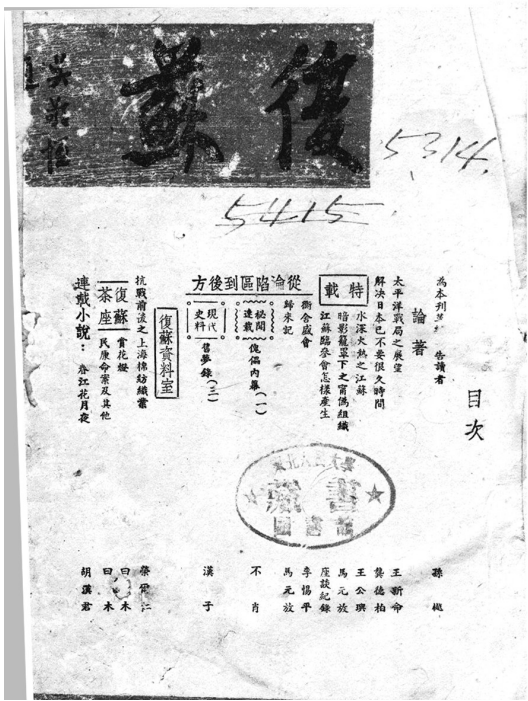 復蘇
吳敬恆
題
5314.
5415
目次
為本刊 告讀者
孫
論著
太平洋戰局之展望
王新命
解決日本已不要很久時間
龔德柏
特載
水深火熱之江蘇
王公璵
暗影籠罩下之甯僞組織
馬元放
江蘇臨參會怎樣產生
座談紀錄
從淪陷區到後方
衡陽會
李惕平
歸來記
馬元放
秘聞連載
傀儡內幕(一)
不肖
現代史料
舊夢錄(三)
漢子
復蘇資料室
抗戰前後之上海棉紡織業
榮爾仁
復蘇茶座
賞花燈
曰木
民康命案及其他
曰木
連載小說：
春江花月夜
胡漢君